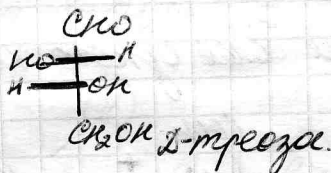 CHO
HO H
H OH
CH₂OH D-треоза.